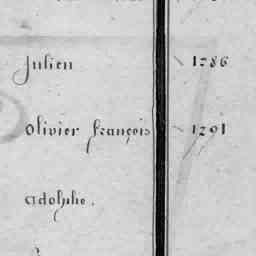 Julien 1786
Olivier françois 1791
adolphe.